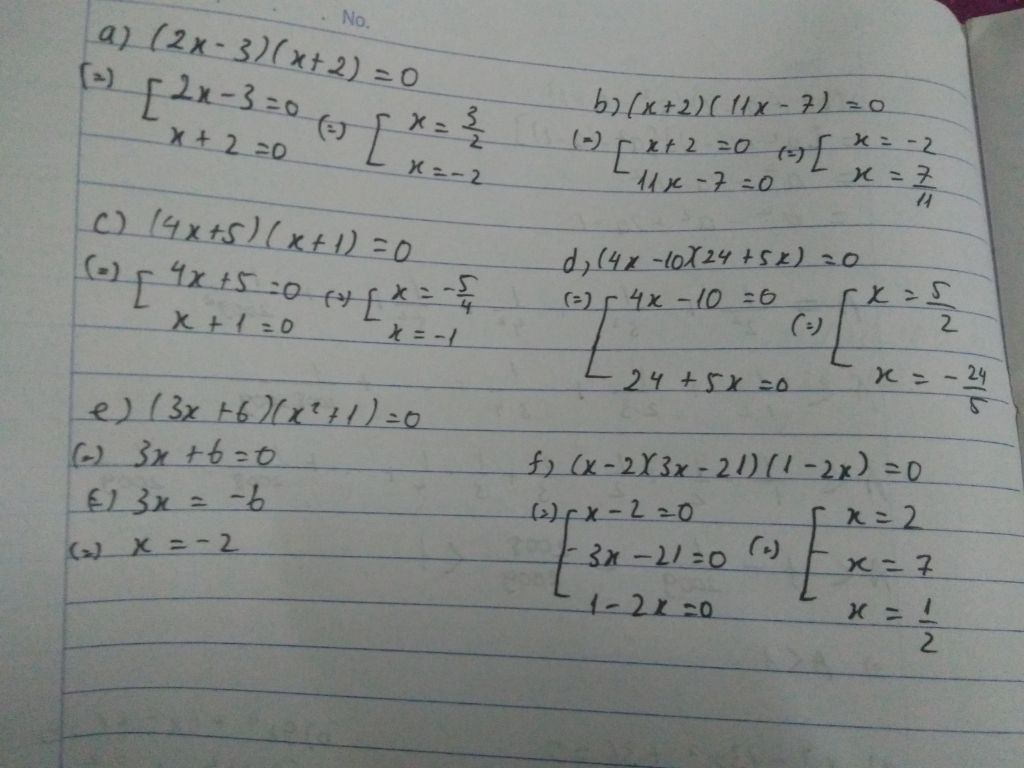 No.
a) (2x-3)(x+2) = 0
(=) [ 2x-3=0 (=) [ x = 3/2
x+2=0 x=-2
b) (x+2)(11x-7) = 0
(=) [ x+2 =0 (=) [ x = -2
11x-7=0 x = 7/11
c) (4x+5)(x+1) = 0
(=) [ 4x+5=0 (=) [ x = -5/4
x+1=0 x=-1
d) (4x-10)(24+5x) = 0
(=) [ 4x-10 =0 (=) [ x = 5/2
24+5x=0 x = -24/5
e) (3x+6)(x²+1)=0
(=) 3x+6=0
(=) 3x = -6
(=) x = -2
f) (x-2)(3x-21)(1-2x) = 0
(=) [ x-2=0 (=) [ x=2
3x-21=0 x = 7
1-2x=0 x = 1/2